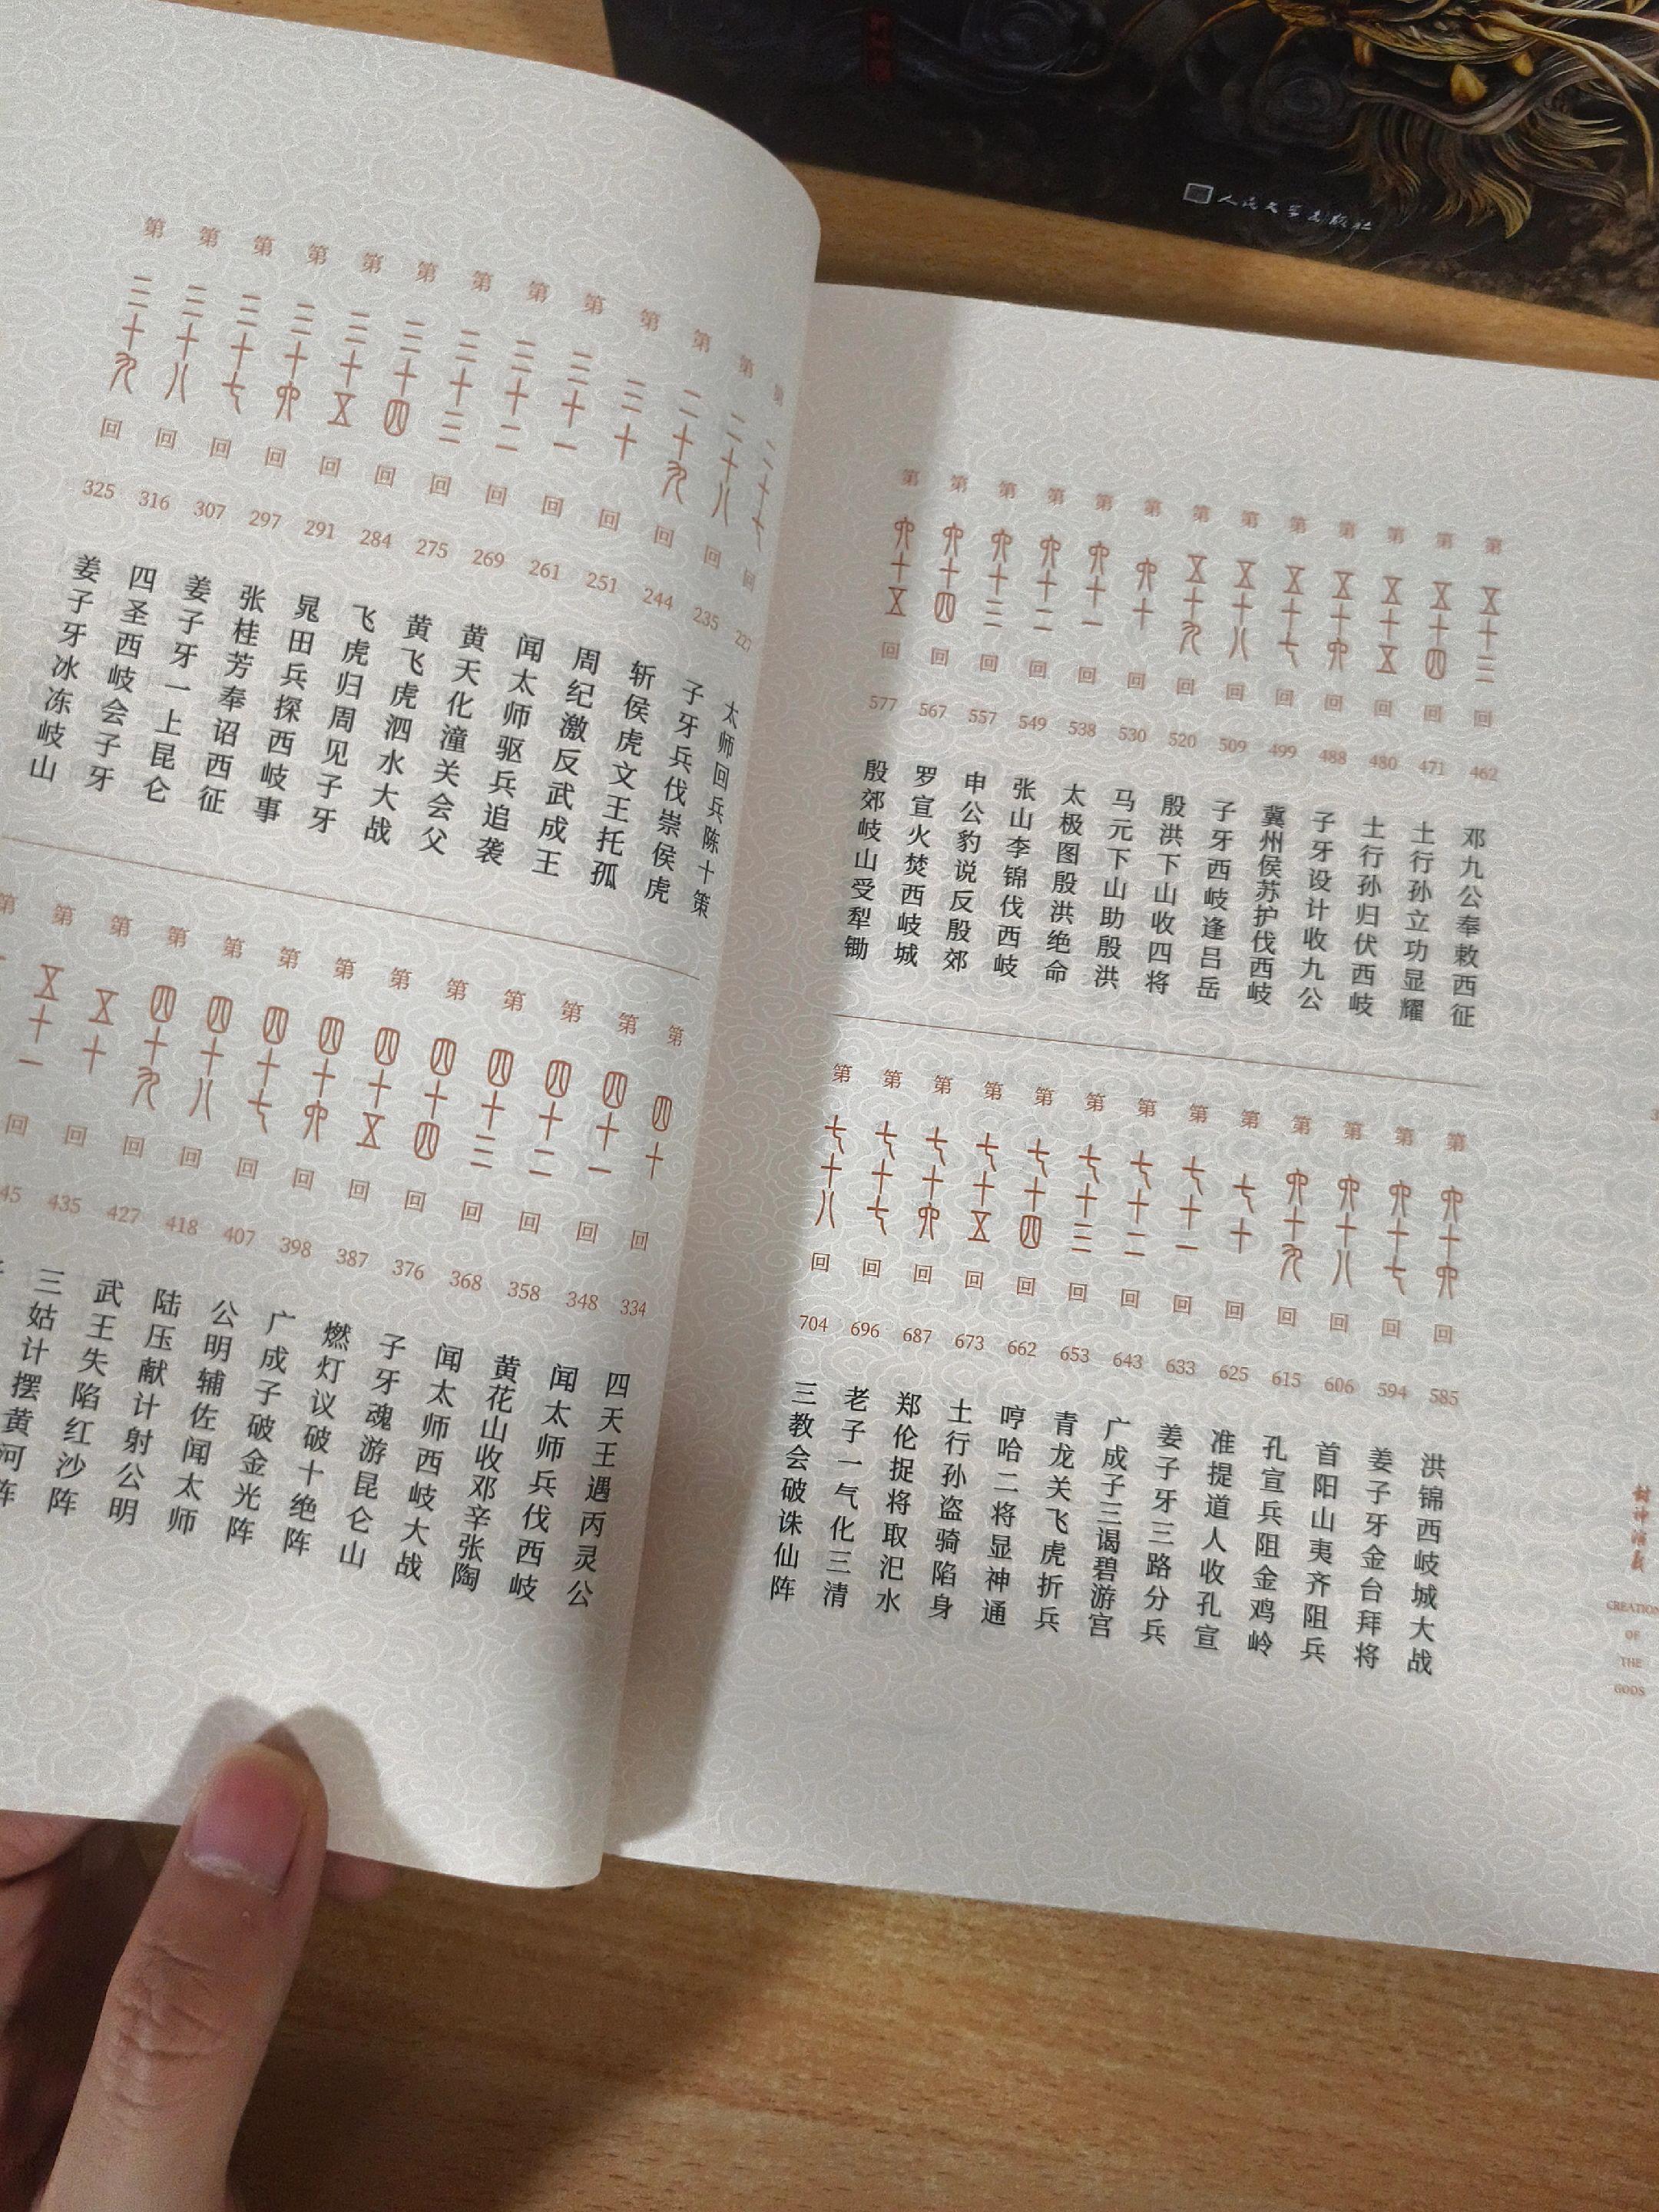 人民文学出版社
第二十七回 227 太师回兵陈十策
第二十八回 235 子牙兵伐崇侯虎
第二十九回 244 斩侯虎文王托孤
第三十回 251 周纪激反武成王
第三十一回 261 闻太师驱兵追袭
第三十二回 269 黄天化潼关会父
第三十三回 275 黄飞虎泗水大战
第三十四回 284 飞虎归周见子牙
第三十五回 291 晁田兵探西岐事
第三十六回 297 张桂芳奉诏西征
第三十七回 307 姜子牙一上昆仑
第三十八回 316 四圣西岐会子牙
第三十九回 325 姜子牙冰冻岐山
第四十回 334 四天王遇丙灵公
第四十一回 348 闻太师兵伐西岐
第四十二回 358 黄花山收邓辛张陶
第四十三回 368 闻太师西岐大战
第四十四回 376 子牙魂游昆仑山
第四十五回 387 燃灯议破十绝阵
第四十六回 398 广成子破金光阵
第四十七回 407 公明辅佐闻太师
第四十八回 418 陆压献计射公明
第四十九回 427 武王失陷红沙阵
第五十回 435 三姑计摆黄河阵
第五十一回 45
第五十三回 462 邓九公奉敕西征
第五十四回 471 土行孙立功显耀
第五十五回 480 土行孙归伏西岐
第五十六回 488 子牙设计收九公
第五十七回 499 冀州侯苏护伐西岐
第五十八回 509 子牙西岐逢吕岳
第五十九回 520 殷洪下山收四将
第六十回 530 马元下山助殷洪
第六十一回 538 太极图殷洪绝命
第六十二回 549 张山李锦伐西岐
第六十三回 557 申公豹说反殷郊
第六十四回 567 罗宣火焚西岐城
第六十五回 577 殷郊岐山受犁锄
第六十六回 585 洪锦西岐城大战
第六十七回 594 姜子牙金台拜将
第六十八回 606 首阳山夷齐阻兵
第六十九回 615 孔宣兵阻金鸡岭
第七十回 625 准提道人收孔宣
第七十一回 633 姜子牙三路分兵
第七十二回 643 广成子三谒碧游宫
第七十三回 653 青龙关飞虎折兵
第七十四回 662 哼哈二将显神通
第七十五回 673 土行孙盗骑陷身
第七十六回 687 郑伦捉将取汜水
第七十七回 696 老子一气化三清
第七十八回 704 三教会破诛仙阵
封神演义
CREATION
OF
THE
GODS